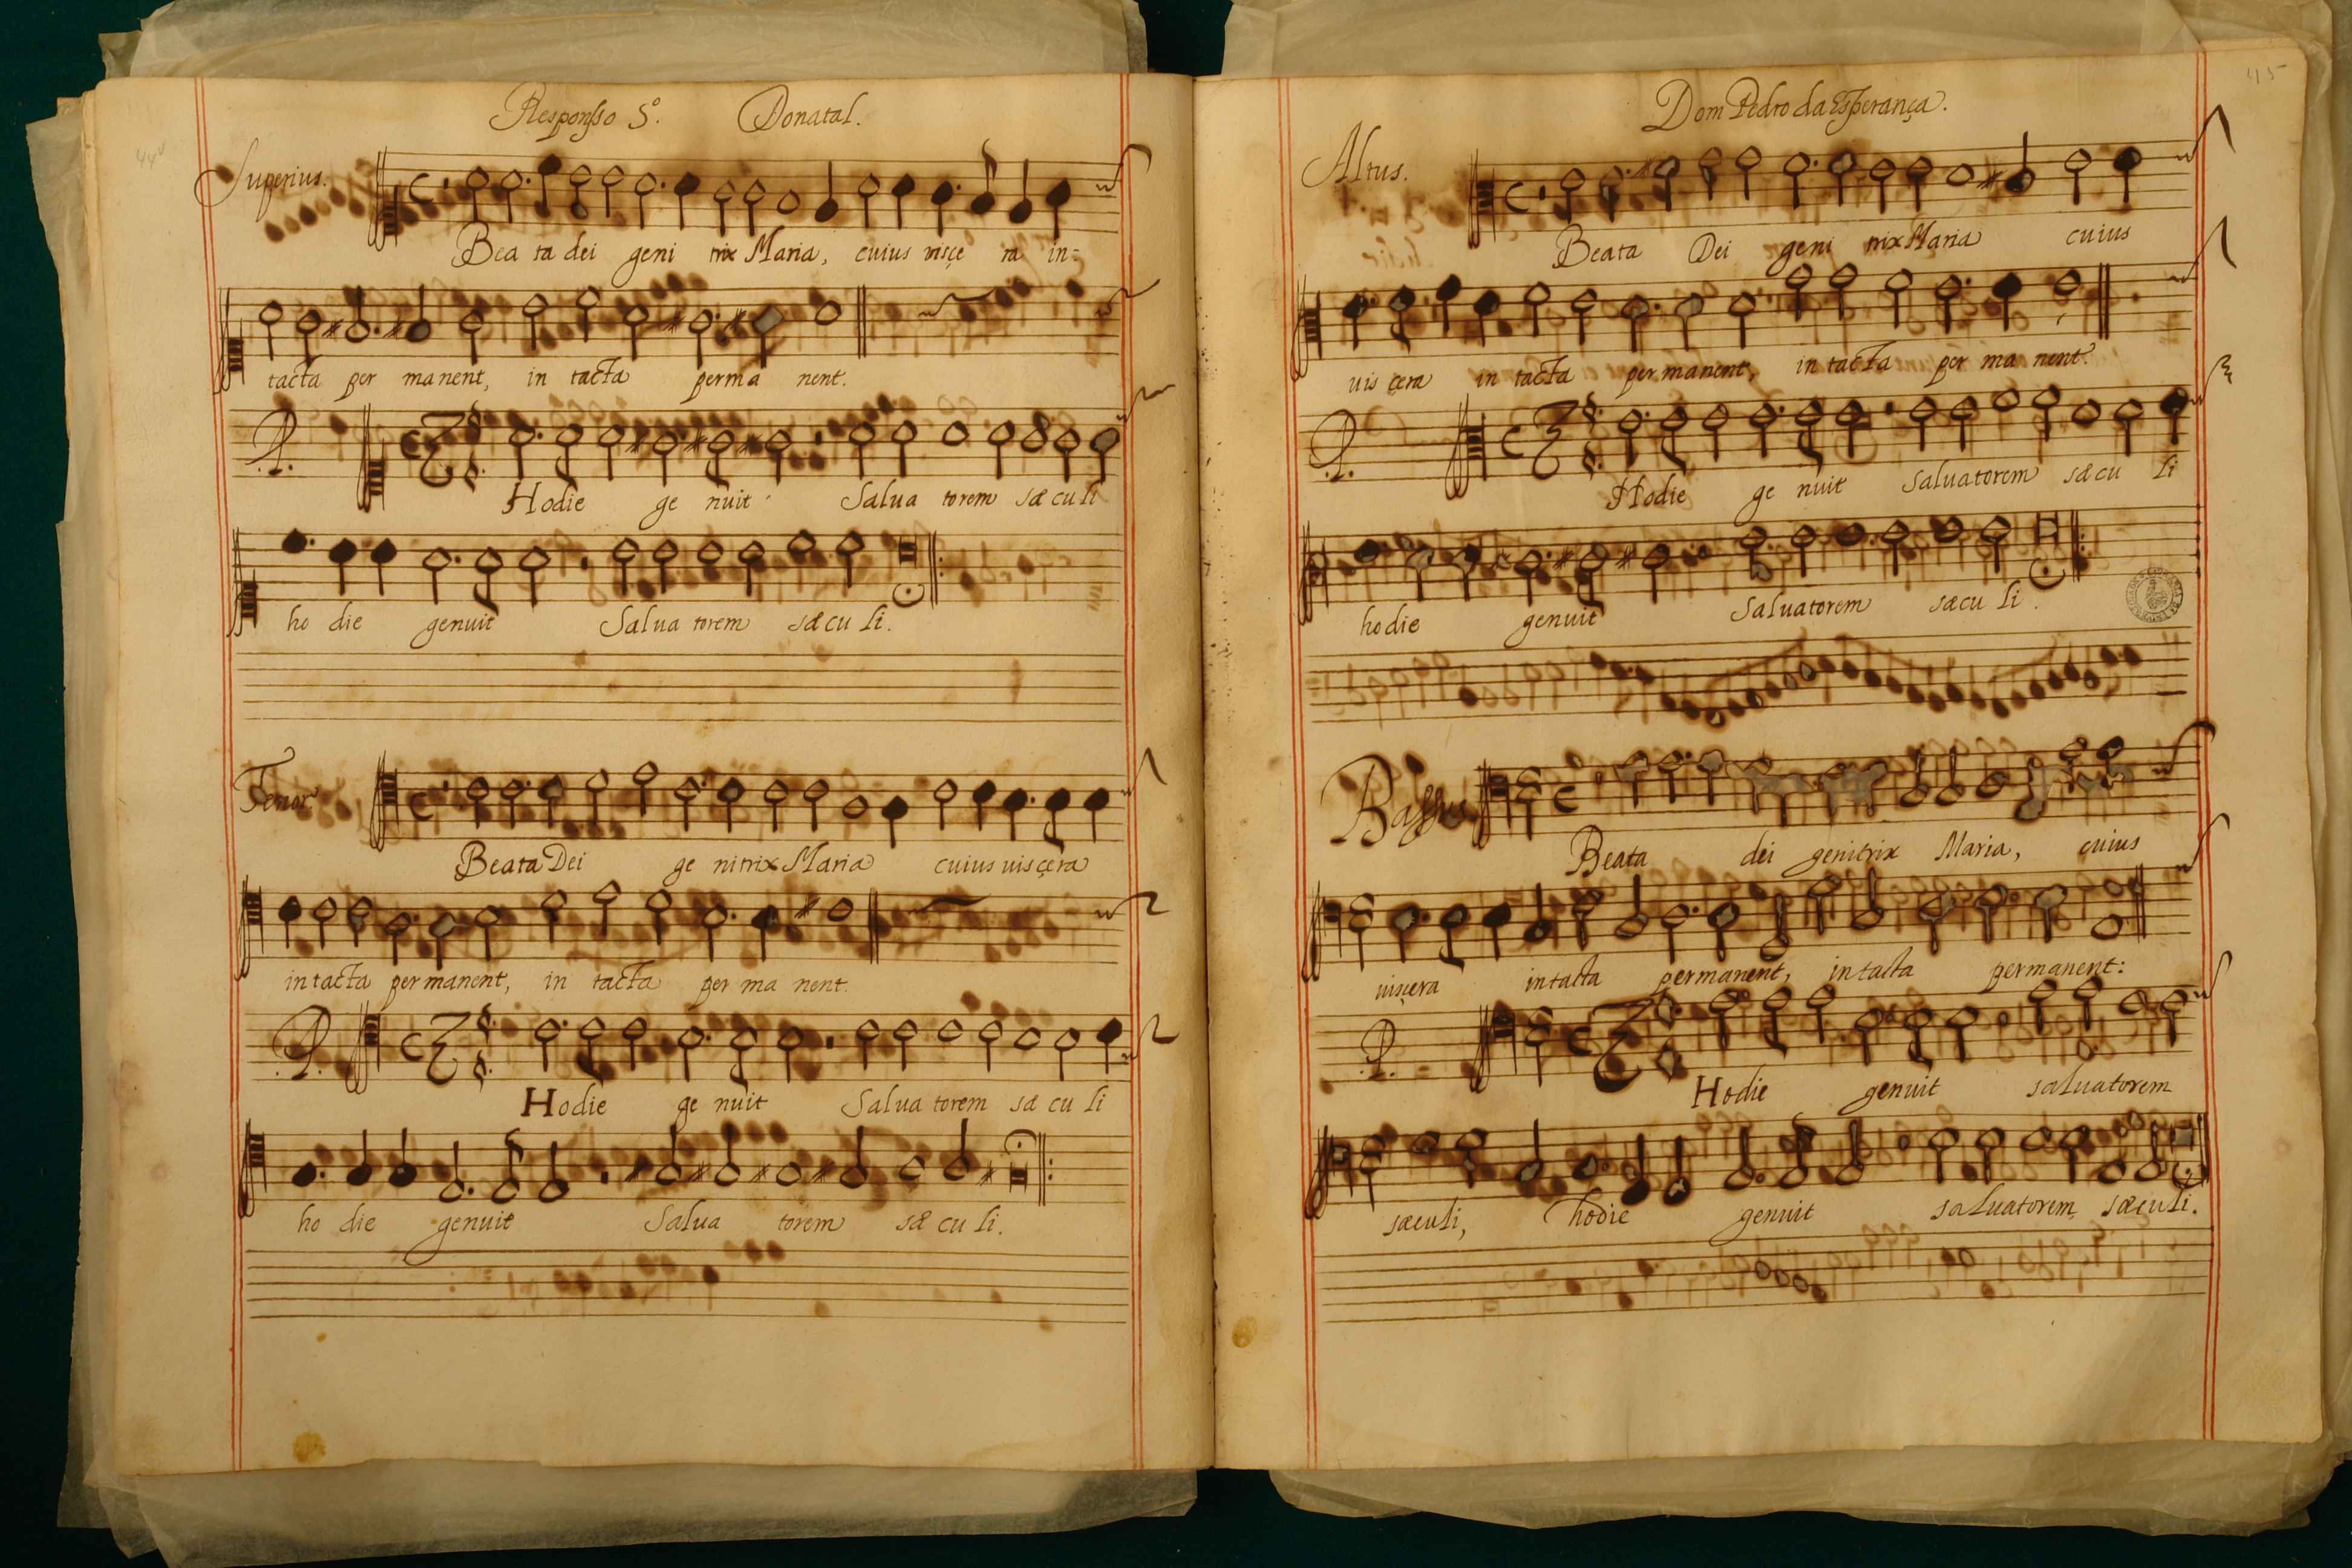 44v
Responsso 5º. Donatal.
Superius.
Bea ta dei geni trix Maria, cuius visçe ra in=
tacta per manent, in tacta perma nent.
Hodie ge nuit Salua torem sæ cu li
ho die genuit Salua torem sæ cu li.
Tenor
Beata Dei ge nitrix Maria cuius uisçera
in tacta per manent, in tacta per ma nent.
Hodie ge nuit Salua torem sæ cu li
ho die genuit Salua torem sæ cu li.
45
Dom Pedro da Esperança.
Altus.
Beata Dei geni trix Maria cuius
uis çera in tacta per manent, in tacta per ma nent.
Hodie ge nuit saluatorem sæ cu li
hodie genuit Saluatorem sæcu li.
Bassus
Beata dei genitrix Maria, cuius
uisçera intacta permanent, in tacta permanent:
Hodie genuit saluatorem
sæculi, hodie genuit saluatorem sæculi.